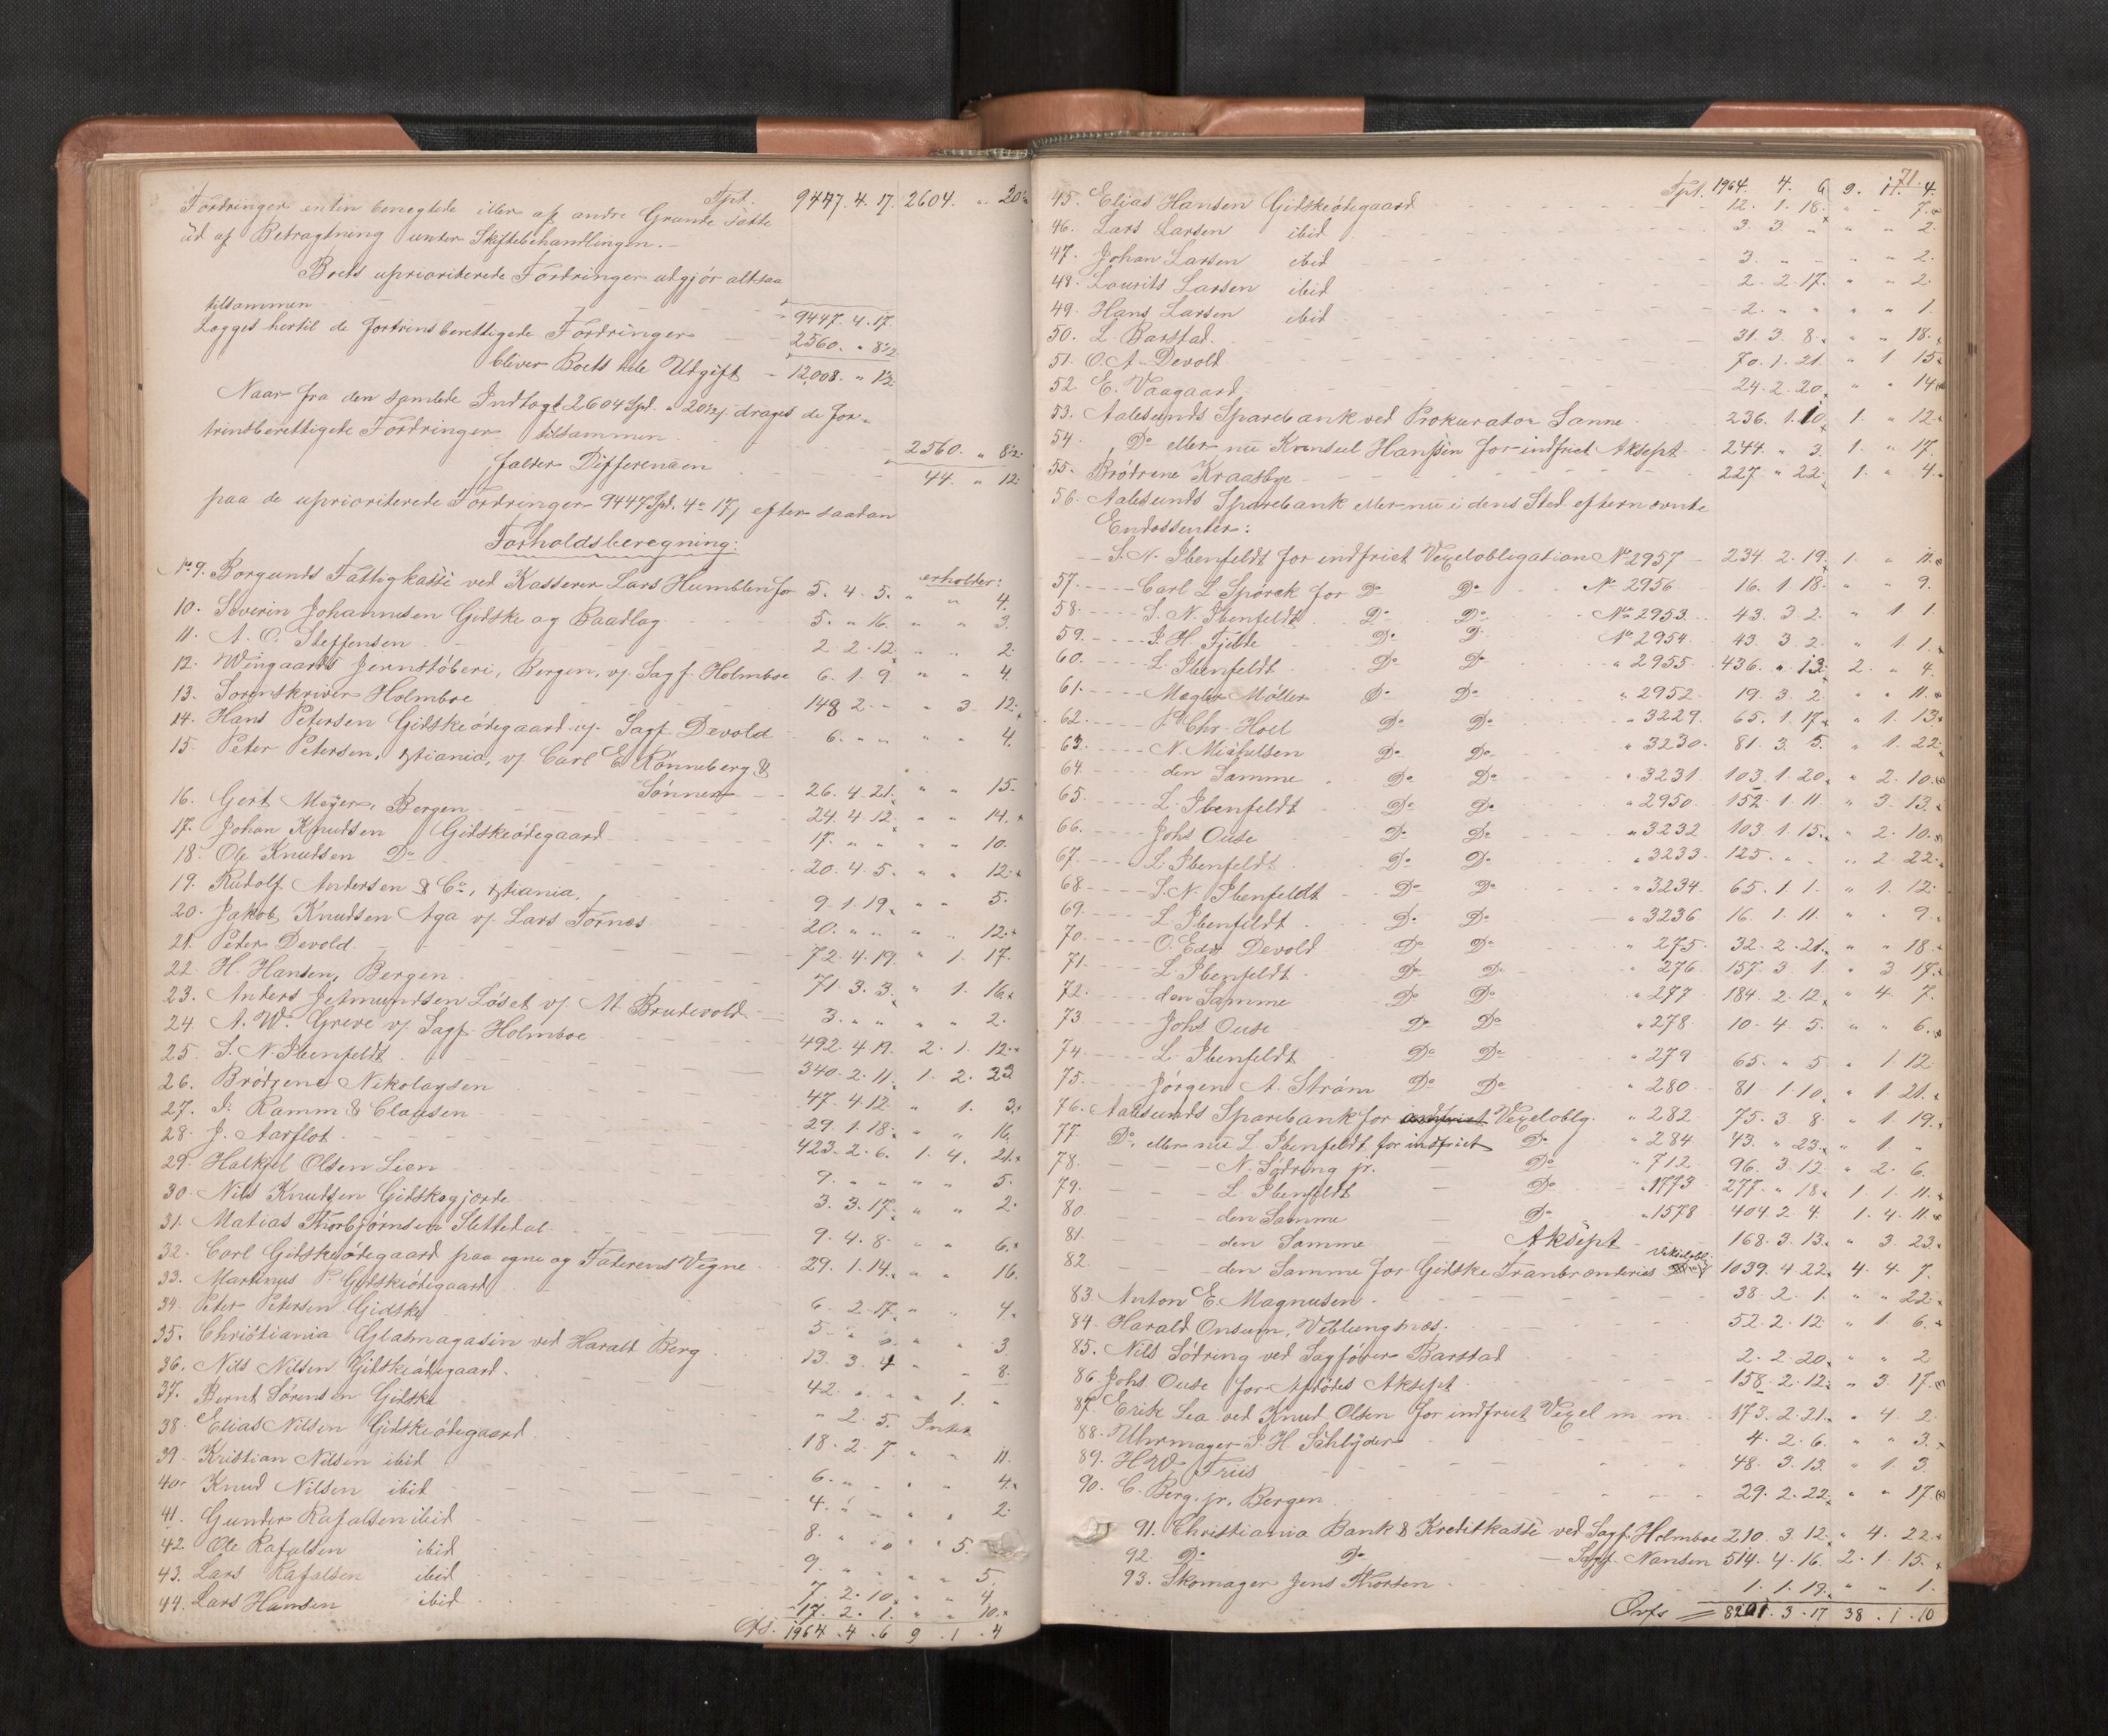 Tpt. 9447. 4. 17. 2604. " 20½
Fordringer enten benegtede eller af andre Grunde satte
ud af Betragtning under Skiftebehandlingen. —
Boets uprioriterede Fordringer udgjør altsaa
tilsammen 9447. 4. 17.
Lægges hertil de fortrinsberettigede Fordringer 2560. " 8½
bliver Boets hele Udgift 12,008. " 1½
Naar fra den samlede Indtægt 2604 Spd. " 20½ drages de for-
trinsberettigede Fordringer tilsammen 2560. " 8½
falder Differencen 44. " 12.
paa de uprioriterede Fordringer 9447 Spd. 4 17 efter saadan
Forholdsberegning:
erholder:
No 9. Borgunds Fattigkasse ved Kasserer Lars Humblen for 5. 4. 5. " " 4.
10. Severin Johannesen Gidske og Baadlag 5. " 16. " " 3.
11. A. O. Steffensen 2. 2. 12. " " 2.
12. Wingaards Jernstøberi, Bergen, v/ Sagf. Holmboe 6. 1. 9. " " 4.
13. Sorenskriver Holmboe 148. 2. " " 3. 12.
14. Hans Petersen Gidskeødegaard v/ Sagf. Devold 6. " " " " 4.
15. Peter Petersen, Xtiania, v/ Carl E. Rønneberg &
Sønner 26. 4. 21. " " 15.
16. Gert Meyer, Bergen 24. 4. 12. " " 14.
17. Johan Knudsen Gidskeødegaard 17. " " " " 10.
18. Ole Knudsen Do 20. 4. 5. " " 12.
19. Rudolf Andersen & Co, Xtiania, 9. 1. 19. " " 5.
20. Jakob Knudsen Aga v/ Lars Tornes 20. " " " " 12.
21. Peter Devold 72. 4. 19. " 1. 17.
22. H. Hansen, Bergen 71. 3. 3. " 1. 16.
23. Anders Jetmundsen Løset v/ M. Brudevold 3. " " " " 2.
24. A. W. Greve v/ Sagf. Holmboe 492. 4. 19. 2. 1. 12.
25. S. N. Ibenfeldt 340. 2. 11. 1. 2. 23
26. Brødrene Nikolaysen 47. 4. 12. " 1. 3.
27. Ramm & Clausen 29. 1. 18. " " 16.
28. J. Aarflot 423. 2. 6. 1. 4. 21.
29. Halkjel Olsen Lien 9. " " " " 5.
30. Nils Knudsen Gidskegjærde 3. 3. 17. " " 2.
31. Matias Thorbjørnsen Slettedal 9. 4. 8. " " 6.
32. Carl Gidskeødegaard paa egne og Faderens Vegne 29. 1. 14. " " 16.
33. Martinus P. Gidskeødegaard 6. 2. 17. " " 4.
34. Peter Petersen Gidske 5. " " " " 3
35. Christiania Glasmagasin ved Harald Berg 13. 3. 4 " " 8.
36. Nils Nilsen Gidskeødegaard. 42. " " " 1. "
37. Bernt Sørensen Gidske " 2. 5. Intet
38. Elias Nilsen Gidskeødegaard 18. 2. 7. " " 11.
39. Kristian Nilsen ibid 6. " " " " 4.
40. Knud Nilsen ibid 4. " " " " 2.
41. Gunder Rafalsen ibid 8. " " " " 5.
42. Ole Rafalsen ibid 9. " " " " 5.
43. Lars Rafalsen ibid 7. 2. 10. " " 4
44. Lars Hansen ibid 17. 2. 1. " " 10.
1964. 4. 6 9. 1. 4
71.
Tpt. 1964. 4. 6 9. 1. 4.
45. Elias Hansen Gidskeødegaard 12. 1. 18. " " 7.
46. Lars Larsen ibid 3. 3. " " " 2.
47. Johan Larsen ibid 3. " " " " 2.
48. Laurits Larsen ibid 2. 2. 17. " " 2.
49. Hans Larsen ibid 2. " " " " 1.
50. L. Barstad. 31. 3. 8. " " 18.
51. O. A. Devold 70. 1. 21. " 1. 15.
52. E. Vaagaard. 24. 2. 20. " " 14.
53. Aalesunds Sparebank ved Prokurator Sanne 236. 1. 10. 1. " 12.
54. Do eller nu Konsul Hanssen for indfriet Aksept 244. " 3. 1. " 17.
55. Brødrene Kraasbye 227. " 22. 1. " 4.
56. Aalesunds Sparebank eller nu i dens Sted efternævnte
Endossenter:
S. N. Ibenfeldt for indfriet Vexelobligation No 2957 234. 2. 19. 1. " 11.
57. Carl L. Spörck for Do Do No 2956 16. 1. 18. " " 9.
58. S. N. Ibenfeldt Do Do No 2953 43. 3. 2. " 1. 1.
59. J. H. Fjelde Do Do No 2954 43. 3. 2. " 1. 1.
60. L. Ibenfeldt Do Do " 2955 436. " 13. 2. " 4.
61. Mægler Møller Do Do " 2952 19. 3. 2. " " 11.
62. P. Chr. Hoel Do Do " 3229 65. 1. 17. " 1. 13.
63. N. Michelsen Do Do " 3230 81. 3. 5. " 1. 22.
64. den Samme Do Do " 3231 103. 1. 20. " 2. 10.
65. L. Ibenfeldt Do Do " 2950 152. 1. 11. " 3. 13.
66. Johs Ouse Do Do " 3232 103. 1. 15. " 2. 10.
67. L. Ibenfeldt Do Do " 3233 125. " " " 2. 22.
68. S. N. Ibenfeldt Do Do " 3234 65. 1. 1. " 1. 12.
69. L. Ibenfeldt Do Do " 3236 16. 1. 11. " " 9.
70. O. Edv. Devold Do Do " 275 32. 2. 21. " " 18.
71. L. Ibenfeldt Do Do " 276 157. 3. 1. " 3. 17.
72. den Samme Do Do " 277 184. 2. 12. " 4. 7.
73 Johs Ouse Do Do " 278 10. 4. 5. " " 6.
74. L. Ibenfeldt Do Do " 279 65. " 5. " 1. 12
75. Jørgen A. Strøm Do Do " 280 81. 1. 10. " 1. 21.
76. Aalesunds Sparebank for indfriet Vexeloblg. " 282 75. 3. 8. " 1. 19.
77. Do, eller nu L. Ibenfeldt for indfriet Do " 284 43. " 23. " 1. "
78. N. Sødring jr. Do " 712 96. 3. 12. " 2. 6.
79. L. Ibenfeldt Do " 1773 277. " 18. 1. 1. 11.
80. den Samme Do " 1578 404. 2. 4. 1. 4. 11.
81. den Samme Aksept 168. 3. 13. " 3. 23.
82. den Samme for Gidske Tranbrænderies Vekselobl. 1039. 4. 22. 4. 4. 7.
83. Anton E. Magnusen 38. 2. 1. " " 22.
84. Harald Onsum, Veblungnæs. 52. 2. 12. " 1. 6.
85. Nils Sødring ved Sagfører Barstad 2. 2. 20. " " 2
86. Johs. Ouse for Afdødes Aksept 158. 2. 12. " 3. 17.
87. Erik Lea ved Knud Olsen for indfriet Vexel m. m. 173. 2. 21. " 4. 2.
88. Uhrmager P. H. Schlyder 4. 2. 6. " " 3.
89. Friis 48. 3. 13. " 1. 3.
90. C. Berg. jr. Bergen 29. 2. 22. " " 17.
91. Christiania Bank & Kreditkasse ved Sagf. Holmboe 210. 3. 12. " 4. 22.
92. Do Do Sagf. Nansen 514. 4. 16. 2. 1. 15.
93. Skomager Jens Thorsen 1. 1. 19. " " 1.
Ovfs 8201. 3. 17 38. 1. 10